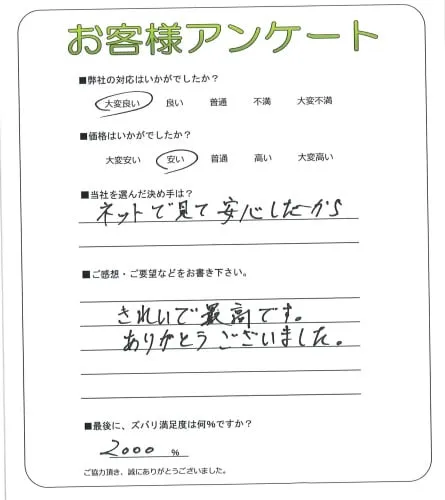 お客様アンケート
■弊社の対応はいかがでしたか？
大変良い 良い 普通 不満 大変不満
■価格はいかがでしたか？
大変安い 安い 普通 高い 大変高い
■当社を選んだ決め手は？
ネットで見て安心したから
■ご感想・ご要望などをお書き下さい。
きれいで最高です。
ありがとうございました。
■最後に、ズバリ満足度は何%ですか？
2000 %
ご協力頂き、誠にありがとうございました。